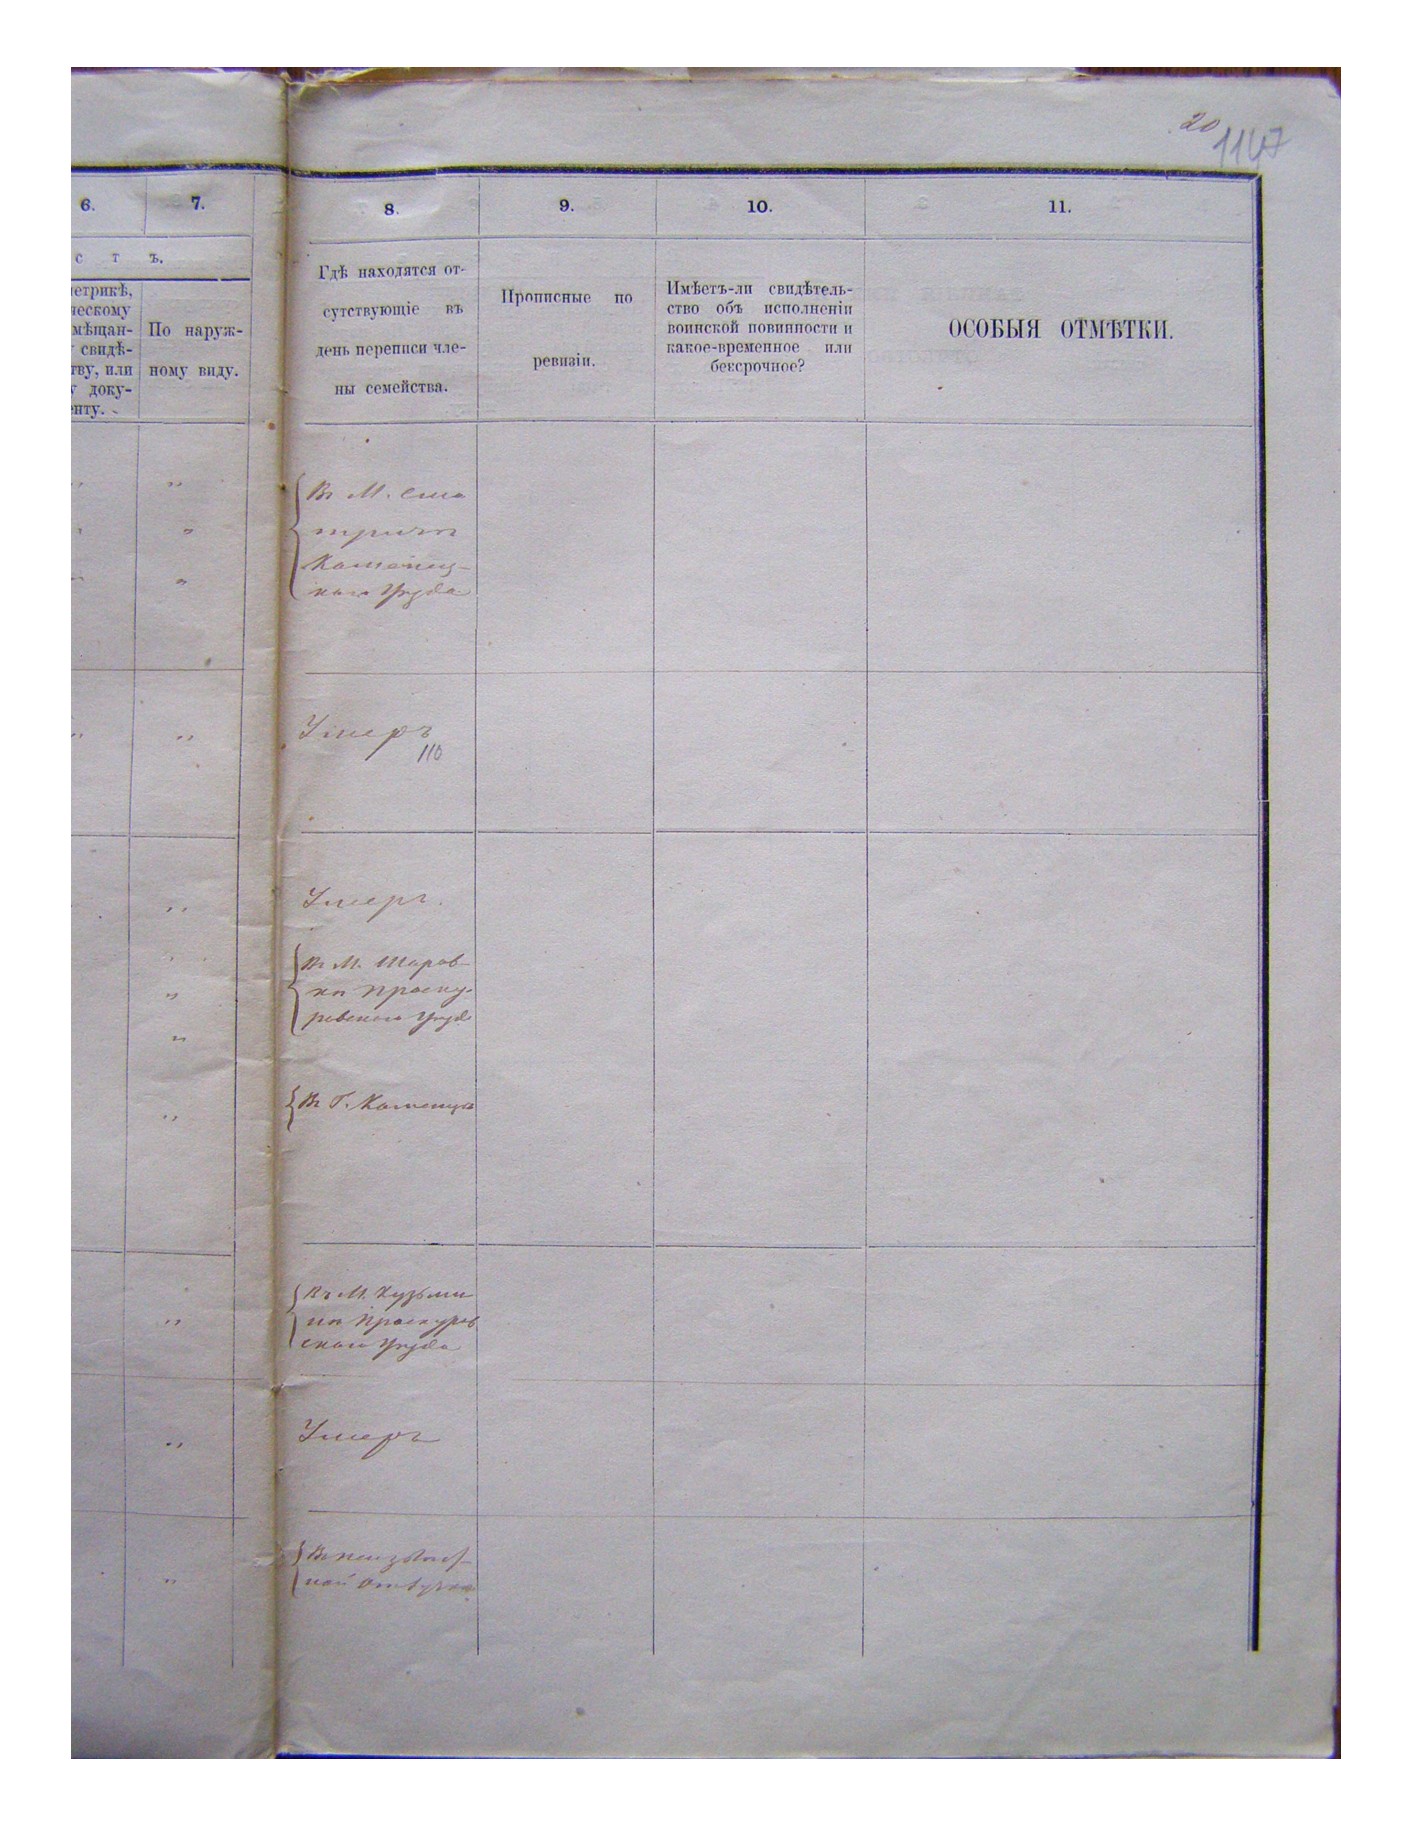 20
1147
6.
7.
8.
9.
10.
11.
с т ъ.
етрикѣ,
ческому
мѣщан-
свидѣ-
тву, или
у доку-
енту.
По наруж-
ному виду.
Гдѣ находятся от-
сутствующіе въ
день переписи чле-
ны семейства.
Прописные по
ревизіи.
Имѣетъ-ли свидѣтель-
ство объ исполненіи
воинской повинности и
какое-временное или
бексрочное?
ОСОБЫЯ ОТМѢТКИ.
Въ М. Смо
тричѣ
Каменец-
каго Уѣзда
Умеръ
110
Умеръ.
Въ М. Шаров-
кѣ Проску-
ровскаго Уѣзда
Въ Г. Каменцѣ
Въ М. Кузьми
нѣ Проскуров
скаго Уѣзда
Умеръ
Въ неизвѣст-
ной отлучкѣ